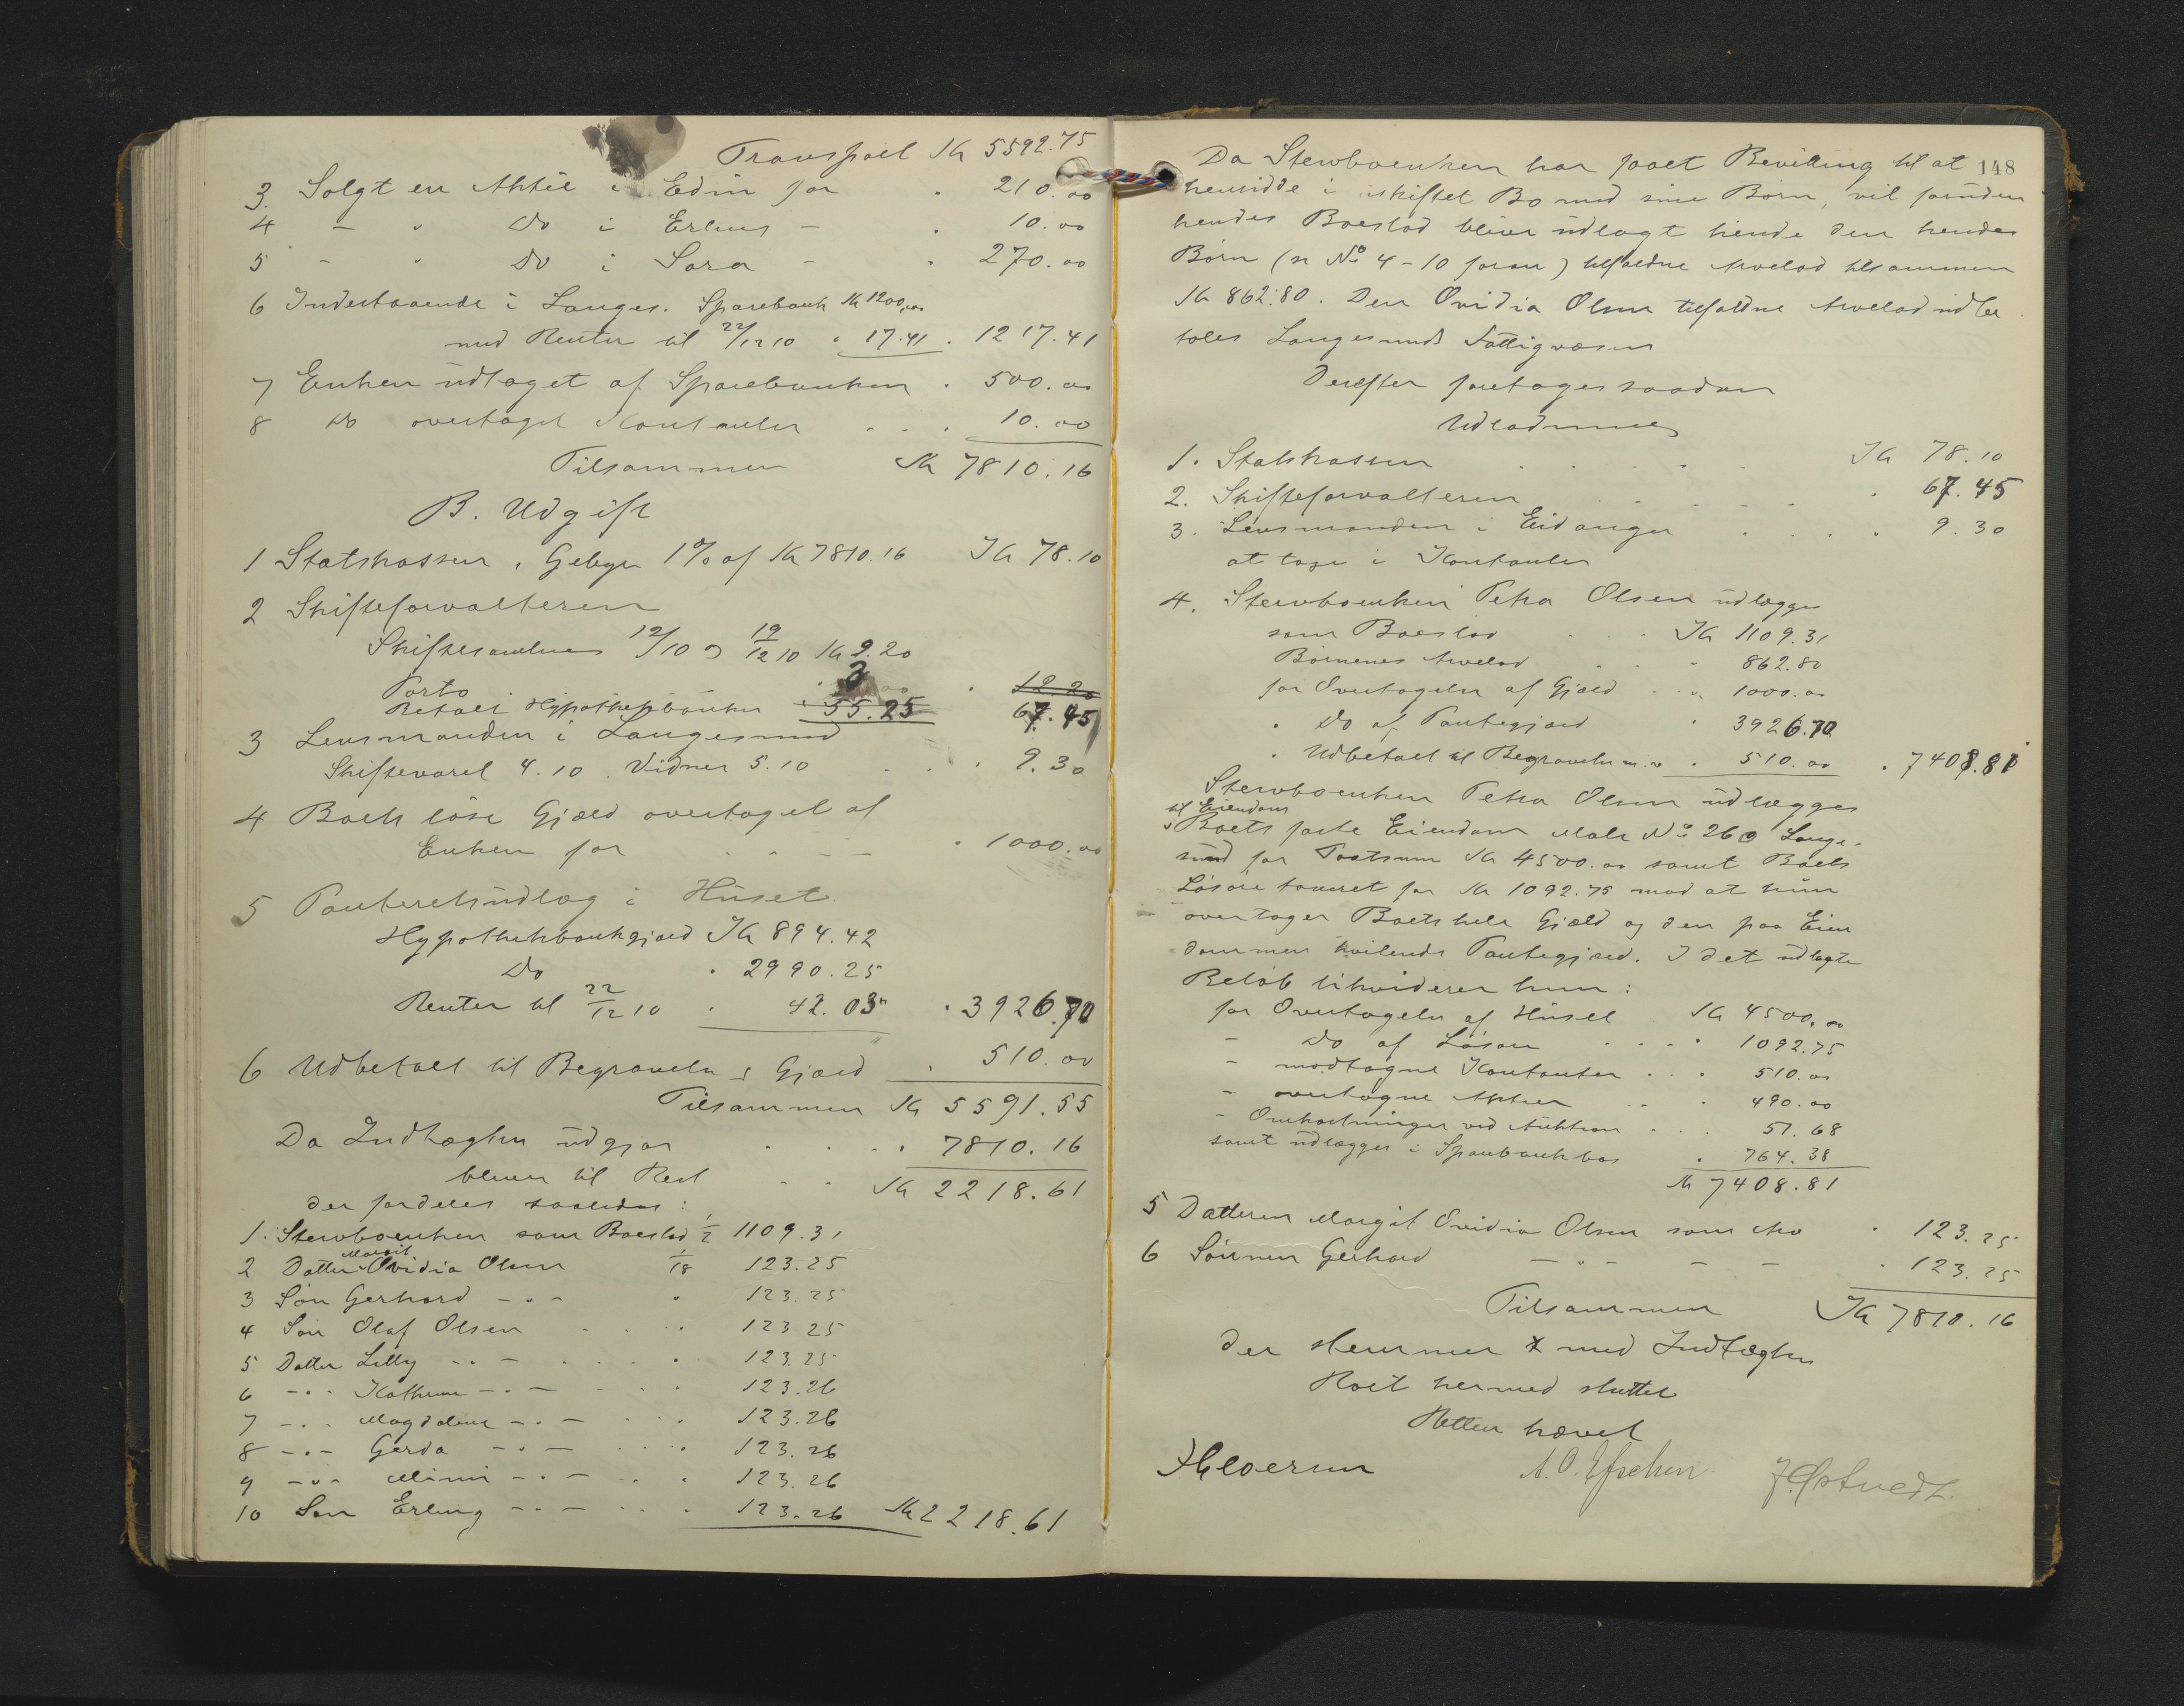 Transport Kr 5592.75
3. Solgt en Aktie i Edin for " 210.00
4 - " Do i Erlings - " 10.00
5 - " Do i Sara - " 270.00
6 Indestaaende i Langes. Sparebank Kr 1200,00
med Renter til 22/12 10 " 17.41 " 1217.41
7 Enken udtaget af Sparebanken " 500.00
8 Do overtaget Kontanter . . . 10.00
Tilsammen Kr 7810.16
B. Udgift
1 Statskassen, Gebyr 1% af Kr 7810.16 Kr 78.10
2 Skifteforvalteren
Skiftesamlinger 12/10 og 19/12 10 Kr 9.20
Porto " 3 " 12 20
Betalt Hypothekbanken " 55.25 67.45
3 Lensmanden i Langesund
Skiftevarsel 4.10. Vidner 5.10 . . . 9.30
4 Boets løse Gjæld overtaget af
Enken for . . - - " 1000.00
5 Panteretsudlæg i Huset
Hypothekbankgjæld Kr 894.42
Do " 2990.25
Renter til 22/12 10 " 42.03 " 3926.70
6 Udbetalt til Begravelse & Gjæld . 510.00
Tilsammen Kr 5591.55
Da Indtægten udgjør . . . . 7810.16
bliver til Rest . . Kr 2218.61
der fordeles saaledes:
1. Stervboenken som Boeslod 1/2 1109.31
2 Datter Margit Ovidia Olsen 1/18 123.25
3 Søn Gerhard - " - " 123.25
4 Søn Olaf Olsen . . . 123 25
5 Datter Lilly - " - . . . . 123.25
6 - " - Kathrine - " - . . . 123.26
7 - " - Magdalene - " - . . . 123.26
8 - " - Gerda - " - . . . 123.26
9 - " - Mimi - " - . . . 123.26
10 Søn Erling - " - . . . 123.26 Kr 2218.61
148
Da Stervboenken har faaet Bevilling til at
hensidde i uskiftet Bo med sine Børn, vil foruden
hendes Boeslod bliver udlagt hende den hendes
Børn (se No 4-10 foran) tilfaldne Arvelod tilsammen
Kr 862.80. Den Ovidia Olsen tilfaldne Arvelod udbe
tales Langesunds Fattigvæsen
Derefter foretages saadan
Udlodning
1. Statskassen . . . . . Kr 78.10
2. Skifteforvalteren . . . . " 67.45
3. Lensmanden i Eidanger . . . . 9.30
at tage i Kontanter
4. Stervboenken Petra Olsen udlægges
som Boeslod . . . Kr 1109.31
Børnenes Arvelod . . " 862.80
for Overtagelse af Gjæld . . " 1000.00
" Do af Pantegjæld " 3926.70
" Udbetalt til Begravelse m.v. " 510.00 " 7408.81
Stervboenken Petra Olsen udlægges
til Eiendom
Boets faste Eiendom Matr No 260 Lange-
sund for Takstsum Kr 4500.00 samt Boets
Løsøre taxeret for Kr 1092.75 mod at hun
overtager Boets hele Gjæld og den paa Eien
dommen hvilende Pantegjæld. I det udlagte
Beløb likviderer hun:
for Overtagelse af Huset Kr 4500,00
- Do af Løsøre . . . " 1092.75
- modtagne Kontanter . . . 510.00
- overtagne Aktier - . 490.00
- Omkostninger ved Auktion . . . 51.68
samt udlægges i Sparebankbog " 764.38
Kr 7408.81
5 Datteren Margit Ovidia Olsen som Arv " 123.25
6 Sønnen Gerhard - " - - - " 123.25
Tilsammen Kr 7810.16
der stemmer med Indtægten
Boet hermed sluttet
Retten hævet
J. Østvedt.